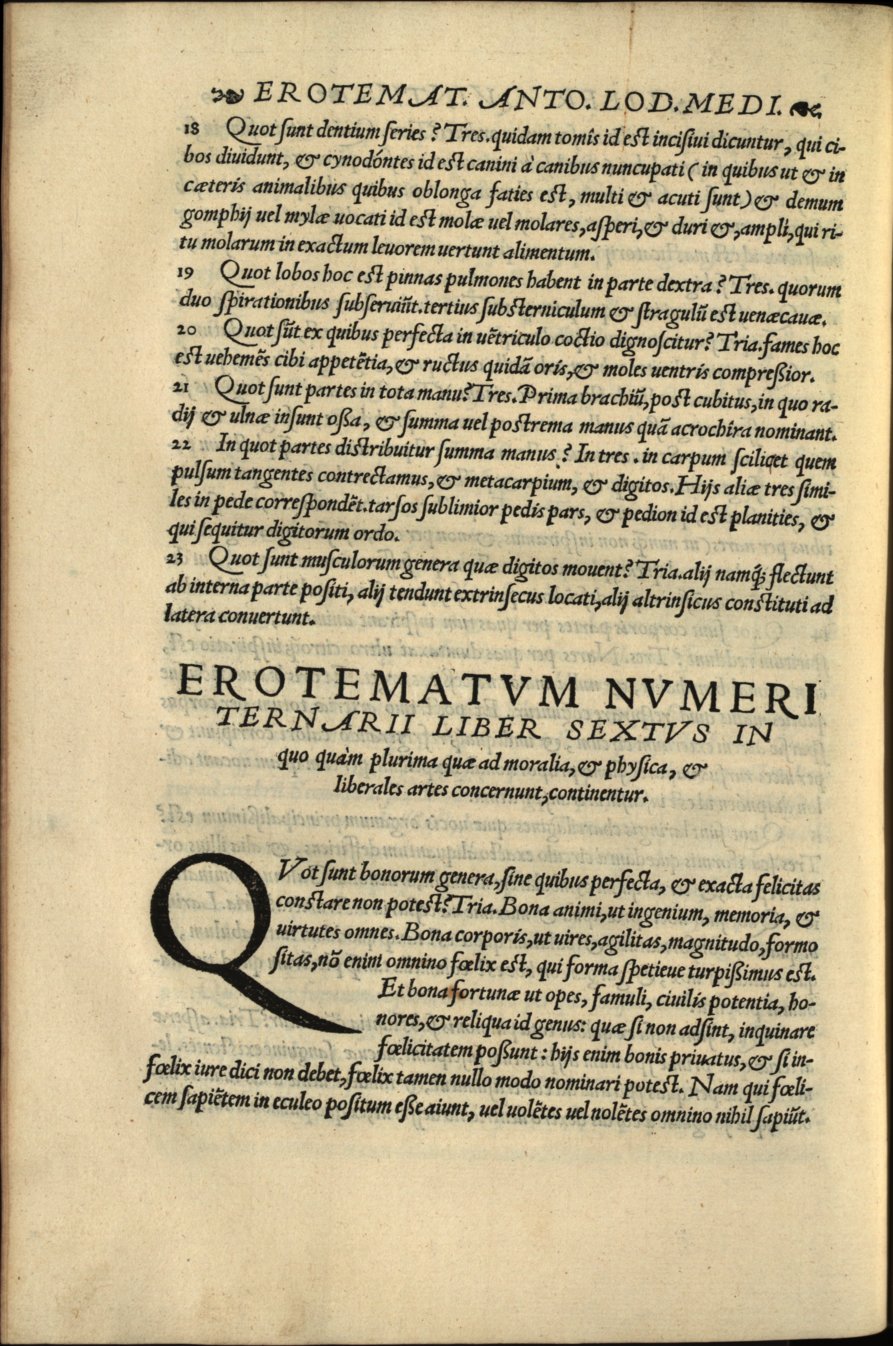 ❧ EROTEMAT. ANTO. LOD. MEDI. ☙
18 Quot sunt dentium series? Tres. quidam tomîs id est incisiui dicuntur, qui ci-
bos diuidunt, & cynodóntes id est canini à canibus nuncupati ( in quibus ut & in
cæteris animalibus quibus oblonga faties est, multi & acuti sunt) & demum
gomphij uel mylæ uocati id est molæ uel molares, asperi, & duri &, ampli, qui ri-
tu molarum in exactum leuorem uertunt alimentum.
19 Quot lobos hoc est pinnas pulmones habent in parte dextra? Tres. quorum
duo spirationibus subseruiūt. tertius substerniculum & stragulū est uenæcauæ.
20 Quot sūt ex quibus perfecta in uētriculo coctio dignoscitur? Tria. fames hoc
est uehemēs cibi appetētia, & ructus quidā oris, & moles uentris compreßior.
21 Quot sunt partes in tota manu? Tres. Prima brachiū, post cubitus, in quo ra-
dij & ulnæ insunt oßa, & summa uel postrema manus quā acrochîra nominant.
22 In quot partes distribuitur summa manus? In tres. in carpum scilicet quem
pulsum tangentes contrectamus, & metacarpium, & digitos. Hijs aliæ tres simi-
les in pede correspondēt. tarsos sublimior pedis pars, & pedion id est planities, &
qui sequitur digitorum ordo.
23 Quot sunt musculorum genera quæ digitos mouent? Tria. alij namq́; flectunt
ab interna parte positi, alij tendunt extrinsecus locati, alij altrinsicus constituti ad
latera conuertunt.
EROTEMATVM NVMERI
TERNARII LIBER SEXTVS IN
quo quàm plurima quæ ad moralia, & physica, &
liberales artes concernunt, continentur.
QVot sunt bonorum genera, sine quibus perfecta, & exacta felicitas
constare non potest? Tria. Bona animi, ut ingenium, memoria, &
uirtutes omnes. Bona corporis, ut uires, agilitas, magnitudo, formo
sitas, nō enim omnino fœlix est, qui forma spetieue turpißimus est.
Et bona fortunæ ut opes, famuli, ciuilis potentia, ho-
nores, & reliqua id genus: quæ si non adsint, inquinare
fœlicitatem poßunt: hijs enim bonis priuatus, & si in-
fœlix iure dici non debet, fœlix tamen nullo modo nominari potest. Nam qui fœli-
cem sapiētem in eculeo positum eße aiunt, uel uolētes uel nolētes omnino nihil sapiūt.